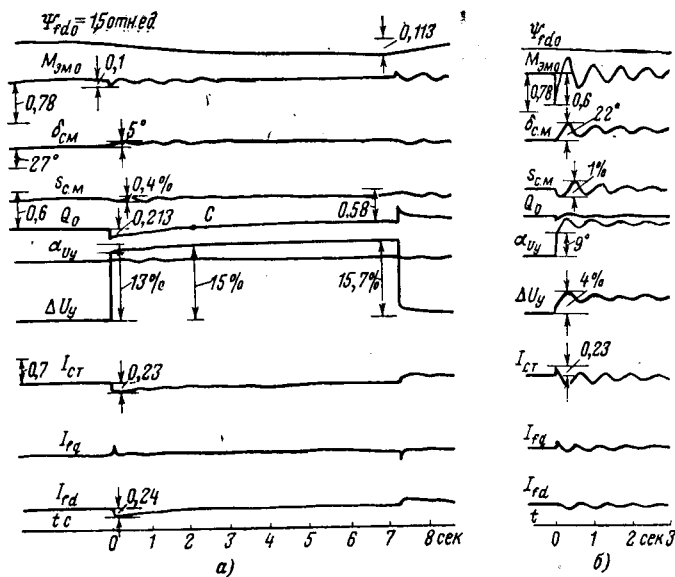 Ψfd0 = 1,5 отн.ед
0,113
Mэмо
0,1
0,78
δс.м
5°
27°
sс.м
0,4%
0,6
Q0
0,213
C
0,58
αUy
13%
15%
15,7%
ΔUy
0,7
Iст
0,23
Ifq
Ifd
0,24
t c
0 1 2 3 4 5 6 7 8 сек
а)
Ψfd0
Mэмо
0,78
0,6
δс.м
22°
sс.м
1%
Q0
αUy
9°
ΔUy
4%
Iст
0,23
Ifq
Ifd
t
0 1 2 сек 3
б)